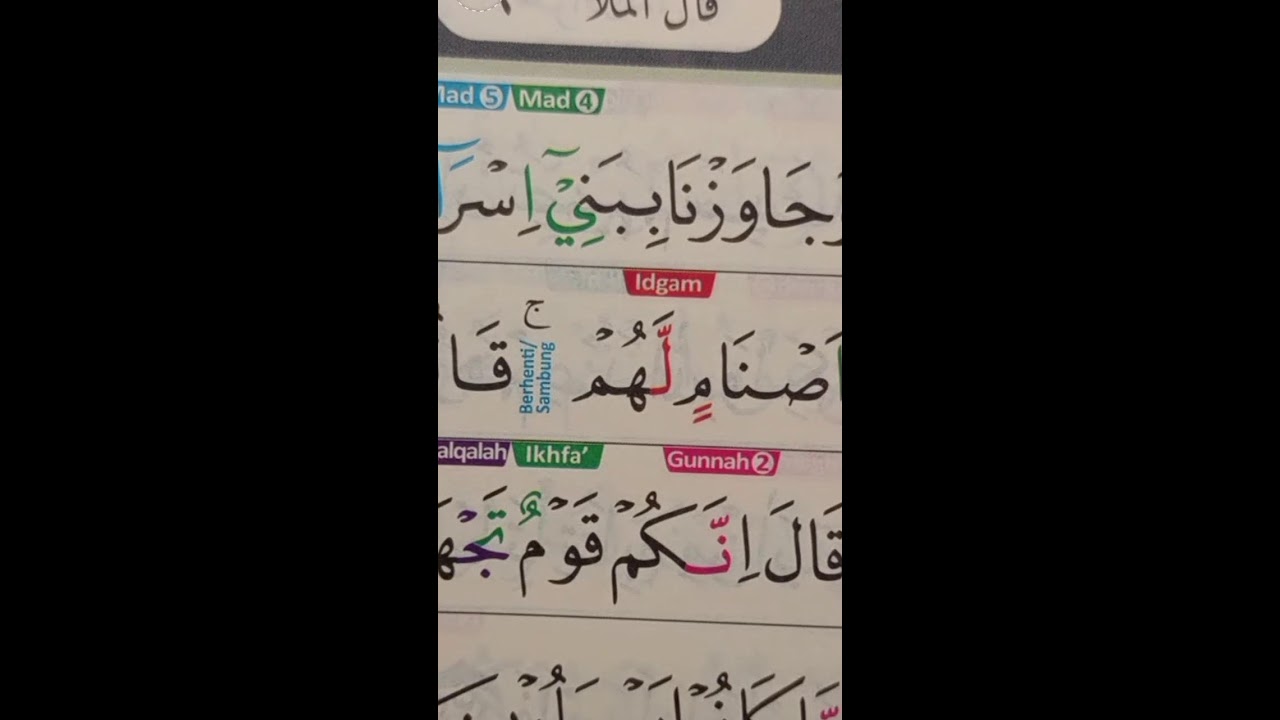 قال الملا
Mad 5 Mad 4
وَجَاوَزْنَا بِبَنِيْٓ اِسْرَآ
Idgam
اَصْنَامٍ لَّهُمْ ۚ قَا
Berhenti/
Sambung
alqalah Ikhfa’ Gunnah 2
قَالَ اِنَّكُمْ قَوْمٌ تَجْهَ